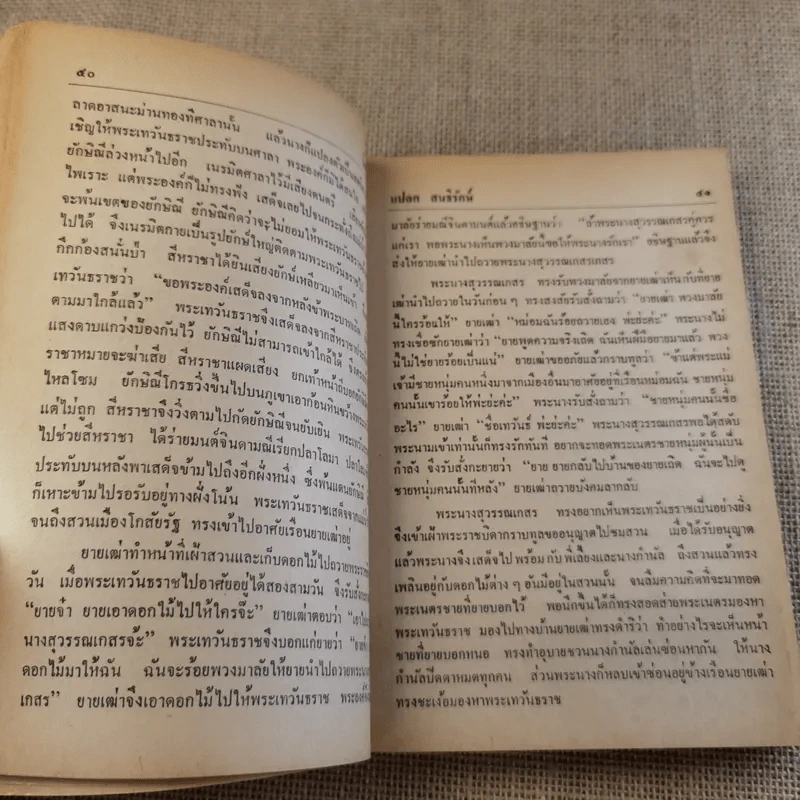 ๕๐
ลาดอาสนะม่านทองที่ศาลานั้น แล้วนางก็แปลงตัวเป็น
เชิญให้พระเทวันธราชประทับบนศาลา พระองค์ก็มิได้สนใจ
ยักษิณีล่วงหน้าไปอีก เนรมิตศาลาไว้มีเสียงดนตรี
ไพเราะ แต่พระองค์ก็ไม่ทรงฟัง เสด็จเลยไปจนกระทั่งถึง
จะพ้นเขตของยักษิณี ยักษิณีคิดว่าจะไม่ยอมให้พระเทวันธราช
ไปได้ จึงเนรมิตกายเป็นรูปยักษ์ใหญ่ติดตามพระเทวันธราชไป
กึกก้องสนั่นป่า สีหราชาได้ยินเสียงยักษ์เหลียวมาเห็นเข้า
เทวันธราชว่า “ขอพระองค์เสด็จลงจากหลังข้าพระบาท
ตามมาใกล้แล้ว” พระเทวันธราชจึงเสด็จลงจากสีหราชา
แสงดาบแกว่งป้องกันไว้ ยักษิณีไม่สามารถเข้าใกล้ได้ จึง
ราชาหมายจะฆ่าเสีย สีหราชาแผดเสียง ยกเท้าหน้าถีบอกยักษิณี
ไหลโซม ยักษิณีโกรธวิ่งขึ้นไปบนภูเขาเอาก้อนหินขว้าง
แต่ไม่ถูก สีหราชาจึงวิ่งตามไปกัดยักษิณีจนยับเยิน พระเทวัน
ไปช่วยสีหราชา ได้ร่ายมนต์จินดามณีเรียกปลาโลมา
ประทับบนหลังพาเสด็จข้ามไปถึงอีกฝั่งหนึ่ง ซึ่งพ้นแดนยักษิณี
ก็เหาะข้ามไปรอรับอยู่ทางฝั่งโน้น พระเทวันธราชเสด็จจาก
จนถึงสวนเมืองโกสัยรัฐ ทรงเข้าไปอาศัยเรือนยายเฒ่าอยู่
ยายเฒ่าทำหน้าที่เฝ้าสวนและเก็บดอกไม้ไปถวายพระราช
วัน เมื่อพระเทวันธราชไปอาศัยอยู่ได้สองสามวัน จึงรับสั่ง
“ยายจ๋า ยายเอาดอกไม้ไปให้ใครจ๊ะ” ยายเฒ่าตอบว่า
นางสุวรรณเกสรจ้ะ” พระเทวันธราชจึงบอกแก่ยายว่า
ดอกไม้มาให้ฉัน ฉันจะร้อยพวงมาลัยให้ยายนำไปถวายพระนาง
เกสร” ยายเฒ่าจึงเอาดอกไม้ไปให้พระเทวันธราช พระองค์
แปลก สนธิรักษ์ ๕๑
มาลัยร่ายมณีจินดามนต์แล้วอธิษฐานว่า “ถ้าพระนางสุวรรณเกสรคู่ควร
แก่เรา พอพระนางเห็นพวงมาลัยนี้ขอให้พระนางรักเรา” อธิษฐานแล้วจึง
ส่งให้ยายเฒ่านำไปถวายพระนางสุวรรณเกสร
พระนางสุวรรณเกสร ทรงรับพวงมาลัยจากยายเฒ่าเห็นกับที่ยาย
เฒ่านำไปถวายในวันก่อน ๆ ทรงสงสัยรับสั่งถามว่า “ยายเฒ่า พวงมาลัย
นี้ใครร้อยให้” ยายเฒ่า “หม่อมฉันร้อยถวายเอง พ่ะย่ะค่ะ” พระนางไม่
ทรงเชื่อซักยายเฒ่าว่า “ยายพูดความจริงเถิด ฉันเห็นฝีมือยายมาแล้ว พวง
นี้ไม่ใช่ยายร้อยเป็นแน่” ยายเฒ่าขออภัยแล้วกราบทูลว่า “ข้าแต่พระแม่
เจ้ามีชายหนุ่มคนหนึ่งมาจากเมืองอื่นมาอาศัยอยู่ที่เรือนหม่อมฉัน ชายหนุ่ม
คนนั้นเขาร้อยให้พ่ะย่ะค่ะ” พระนางรับสั่งถามว่า “ชายหนุ่มคนนั้นชื่อ
อะไร” ยายเฒ่า “ชื่อเทวันธ์ พ่ะย่ะค่ะ” พระนางสุวรรณเกสรพอได้สดับ
พระนามเข้าเท่านั้นก็ทรงรักทันที อยากจะทอดพระเนตรชายหนุ่มผู้นั้นเป็น
กำลัง จึงรับสั่งกะยายว่า “ยาย ยายกลับไปบ้านของยายเถิด ฉันจะไปดู
ชายหนุ่มคนนั้นทีหลัง” ยายเฒ่าถวายบังคมลากลับ
พระนางสุวรรณเกสร ทรงอยากเห็นพระเทวันธราชเป็นอย่างยิ่ง
จึงเข้าเฝ้าพระชนิดากราบทูลขออนุญาตไปชมสวน เมื่อได้รับอนุญาต
แล้วพระนางจึงเสด็จไปพร้อมกับพี่เลี้ยงและนางกำนัล ถึงสวนแล้วทรง
เพลินอยู่กับดอกไม้ต่าง ๆ อันมีอยู่ในสวนนั้น จนลืมความคิดที่จะมาทอด
พระเนตรชายที่ยายบอกไว้ พอนึกขึ้นได้ก็ทรงสอดส่ายพระเนตรมองหา
พระเทวันธราช มองไปทางบ้านยายเฒ่าทรงดำริว่า ทำอย่างไรจะเห็นหน้า
ชายที่ยายบอกหนอ ทรงทำอุบายชวนนางกำนัลเล่นซ่อนหากัน ให้นาง
กำนัลปิดตาหมดทุกคน ส่วนพระนางก็หลบเข้าซ่อนอยู่ข้างเรือนยายเฒ่า
ทรงชะเง้อมองหาพระเทวันธราช